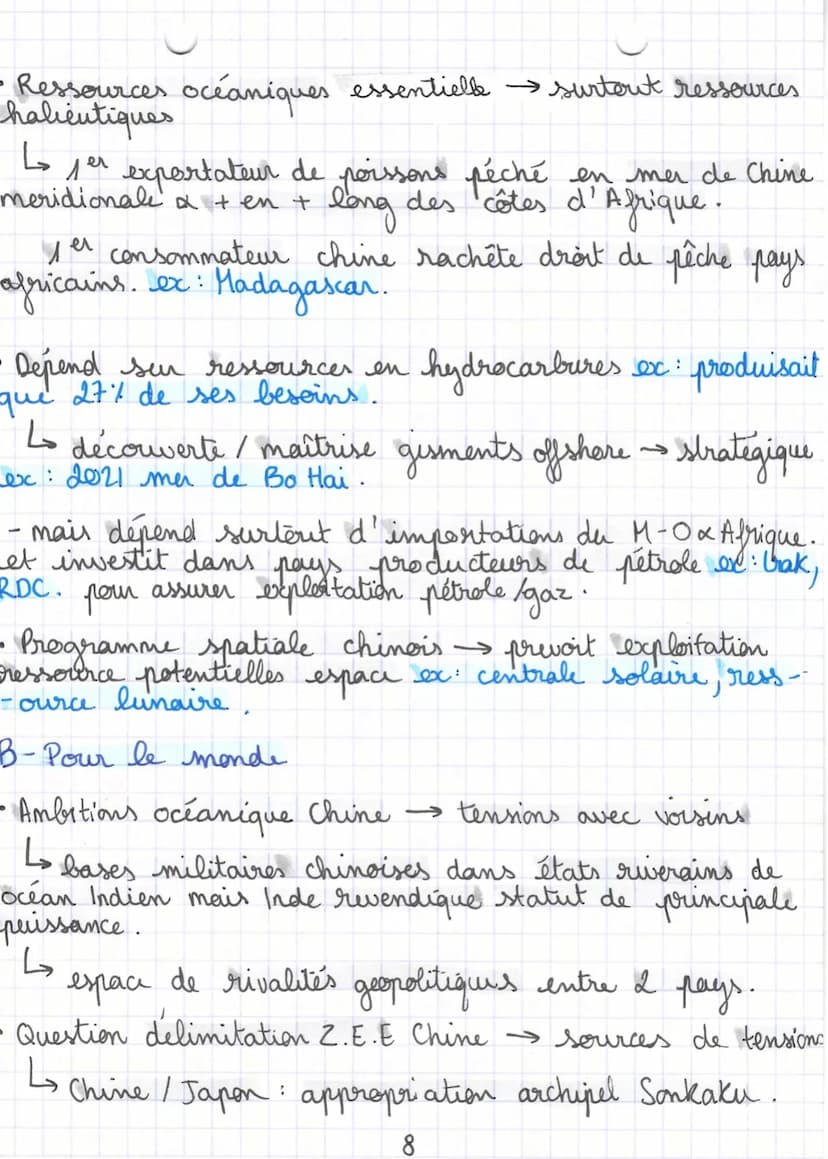 · Ressources océaniques essentielle → surtout ressources
halieutiques
↳ 1er exportateur de poissons pêché en mer de Chine
meridionale & + en + long des côtes d'Afrique.
1er consommateur chine rachête droit de pêche pays
africains. ex : Madagascar.
· Dépend sur ressources en hydrocarbures ex : produisait
que 27% de ses besoins.
↳ découverte / maîtrise gisments offshore → stratégique
ex : 2021 mer de Bo Hai.
- mais dépend surtout d'importations du M-O & Afrique.
et investit dans pays producteurs de pétrole ex : Irak,
RDC. pour assurer exploitation pétrole /gaz.
· Programme spatiale chinois → prevoit exploitation
ressource potentielles espace ex : centrale solaire, ress-
-ource lunaire.
B- Pour le monde
· Ambitions océanique Chine → tensions avec voisins
↳ bases militaires chinoises dans états riverains de
océan Indien mais Inde revendique statut de principale
puissance.
↳ espace de rivalités geopolitiques entre 2 pays.
· Question délimitation Z.E.E Chine → sources de tensions
↳ Chine / Japon : appropriation archipel Sonkaku.
8